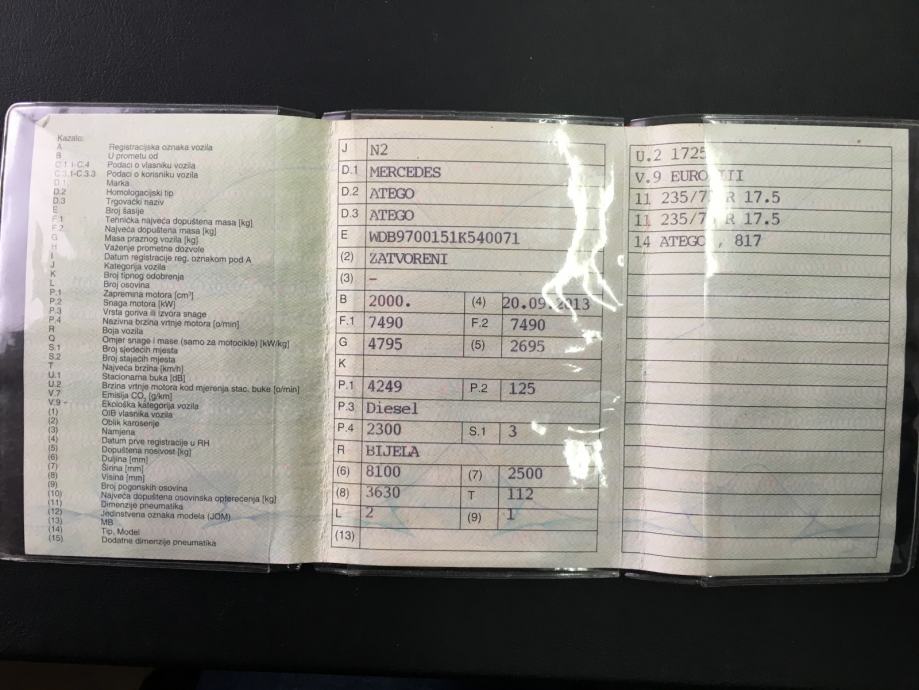 Kazalo:
A Registracijska oznaka vozila
B U prometu od
C.1.1-C.4 Podaci o vlasniku vozila
C.3.1-C.3.3 Podaci o korisniku vozila
D.1 Marka
D.2 Homologacijski tip
D.3 Trgovački naziv
E Broj šasije
F.1 Tehnička najveća dopuštena masa [kg]
F.2 Najveća dopuštena masa [kg]
G Masa praznog vozila [kg]
H Važenje prometne dozvole
I Datum registracije reg. oznakom pod A
J Kategorija vozila
K Broj tipnog odobrenja
L Broj osovina
P.1 Zapremina motora [cm³]
P.2 Snaga motora [kW]
P.3 Vrsta goriva ili izvora snage
P.4 Nazivna brzina vrtnje motora [o/min]
R Boja vozila
Q Omjer snage i mase (samo za motocikle) [kW/kg]
S.1 Broj sjedećih mjesta
S.2 Broj stajaćih mjesta
T Najveća brzina [km/h]
U.1 Stacionarna buka [dB]
U.2 Brzina vrtnje motora kod mjerenja stac. buke [o/min]
V.7 Emisija CO₂ [g/km]
V.9 Ekološka kategorija vozila
(1) OIB vlasnika vozila
(2) Oblik karoserije
(3) Namjena
(4) Datum prve registracije u RH
(5) Dopuštena nosivost [kg]
(6) Duljina [mm]
(7) Širina [mm]
(8) Visina [mm]
(9) Broj pogonskih osovina
(10) Najveća dopuštena osovinska opterećenja [kg]
(11) Dimenzije pneumatika
(12) Jedinstvena oznaka modela (JOM)
(13) MB
(14) Tip, Model
(15) Dodatne dimenzije pneumatika
J N2
D.1 MERCEDES
D.2 ATEGO
D.3 ATEGO
E WDB9700151K540071
(2) ZATVORENI
(3) –
B 2000. (4) 20.09.2013
F.1 7490 F.2 7490
G 4795 (5) 2695
K
P.1 4249 P.2 125
P.3 Diesel
P.4 2300 S.1 3
R BIJELA
(6) 8100 (7) 2500
(8) 3630 T 112
L 2 (9) 1
(13)
U.2 1725
V.9 EURO III
11 R 17.5
11 R 17.5
14 ATEGO , 817